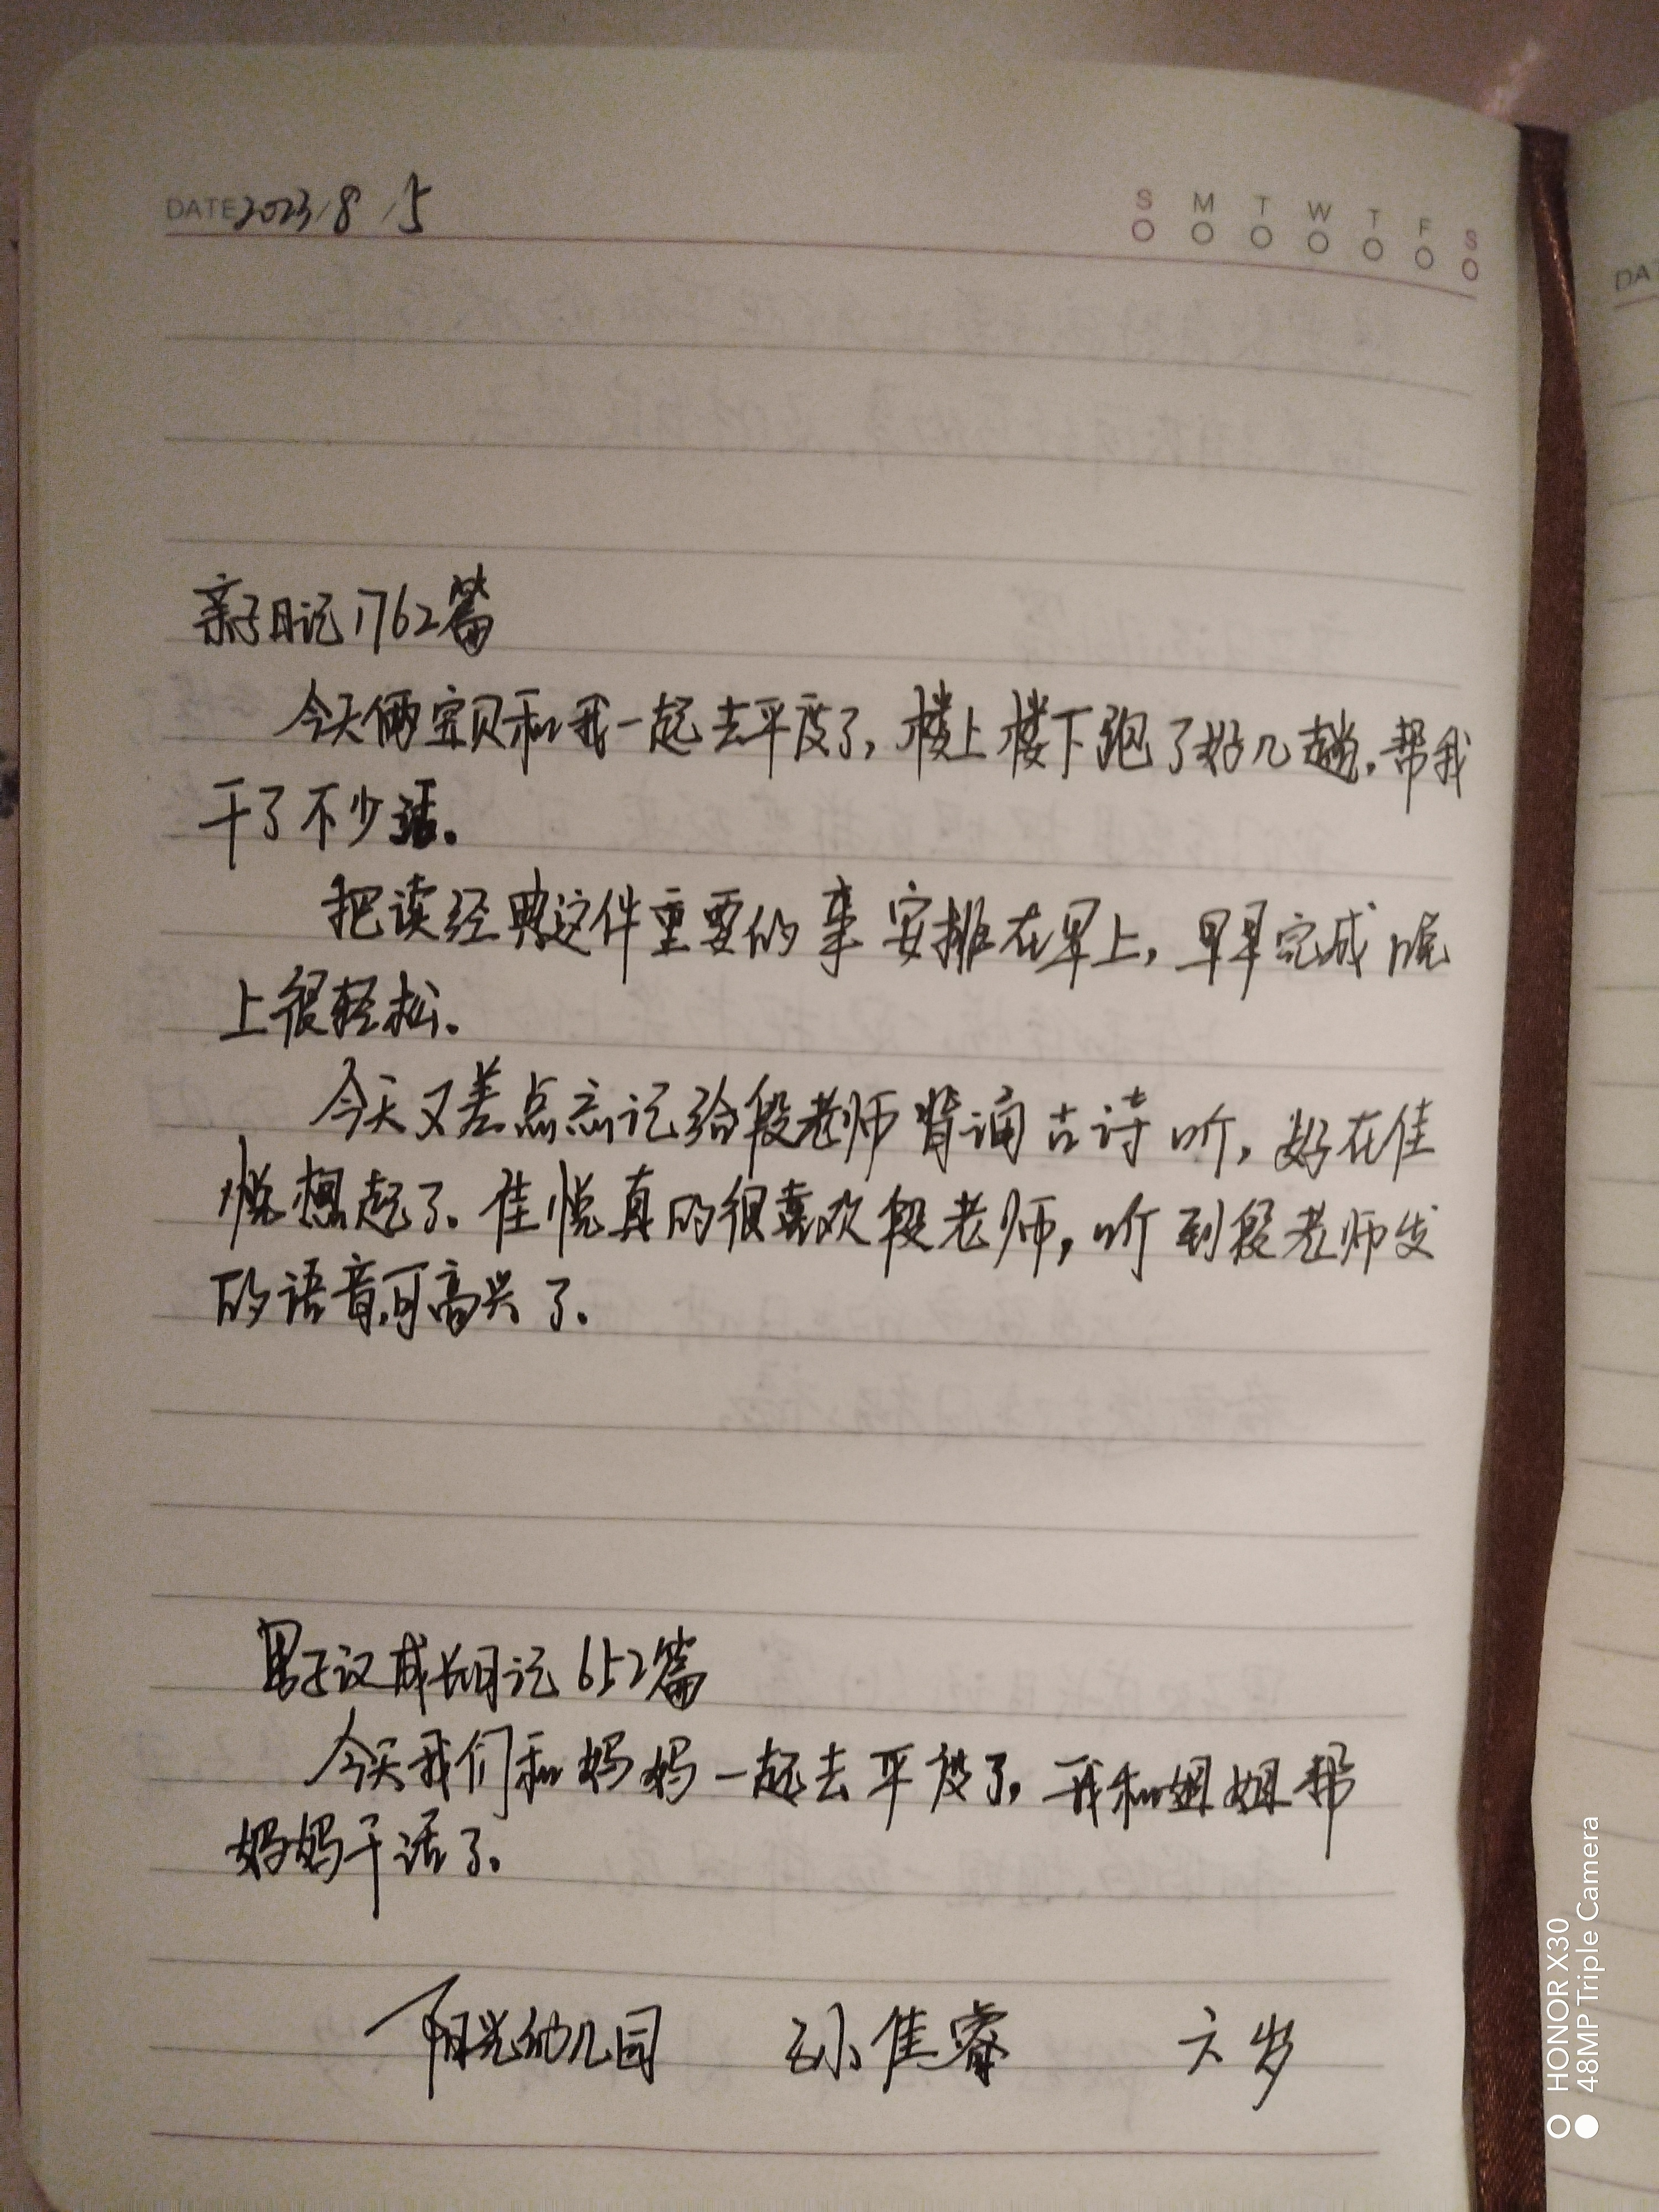 DATE 2023/8/5
S M T W T F S
亲子日记1762篇
今天俩宝贝和我一起去平度了,楼上楼下跑了好几趟,帮我
干了不少活。
把读经典这件重要的事安排在早上,早早完成晚
上很轻松。
今天又差点忘记给段老师背诵古诗听,好在佳
悦想起了。佳悦真的很喜欢段老师,听到段老师发
的语音,可高兴了。
男子汉成长日记652篇
今天我们和妈妈一起去平度了,我和姐姐帮
妈妈干活了。
阳光幼儿园 孙佳睿 六岁
DA
HONOR X30
48MP Triple Camera